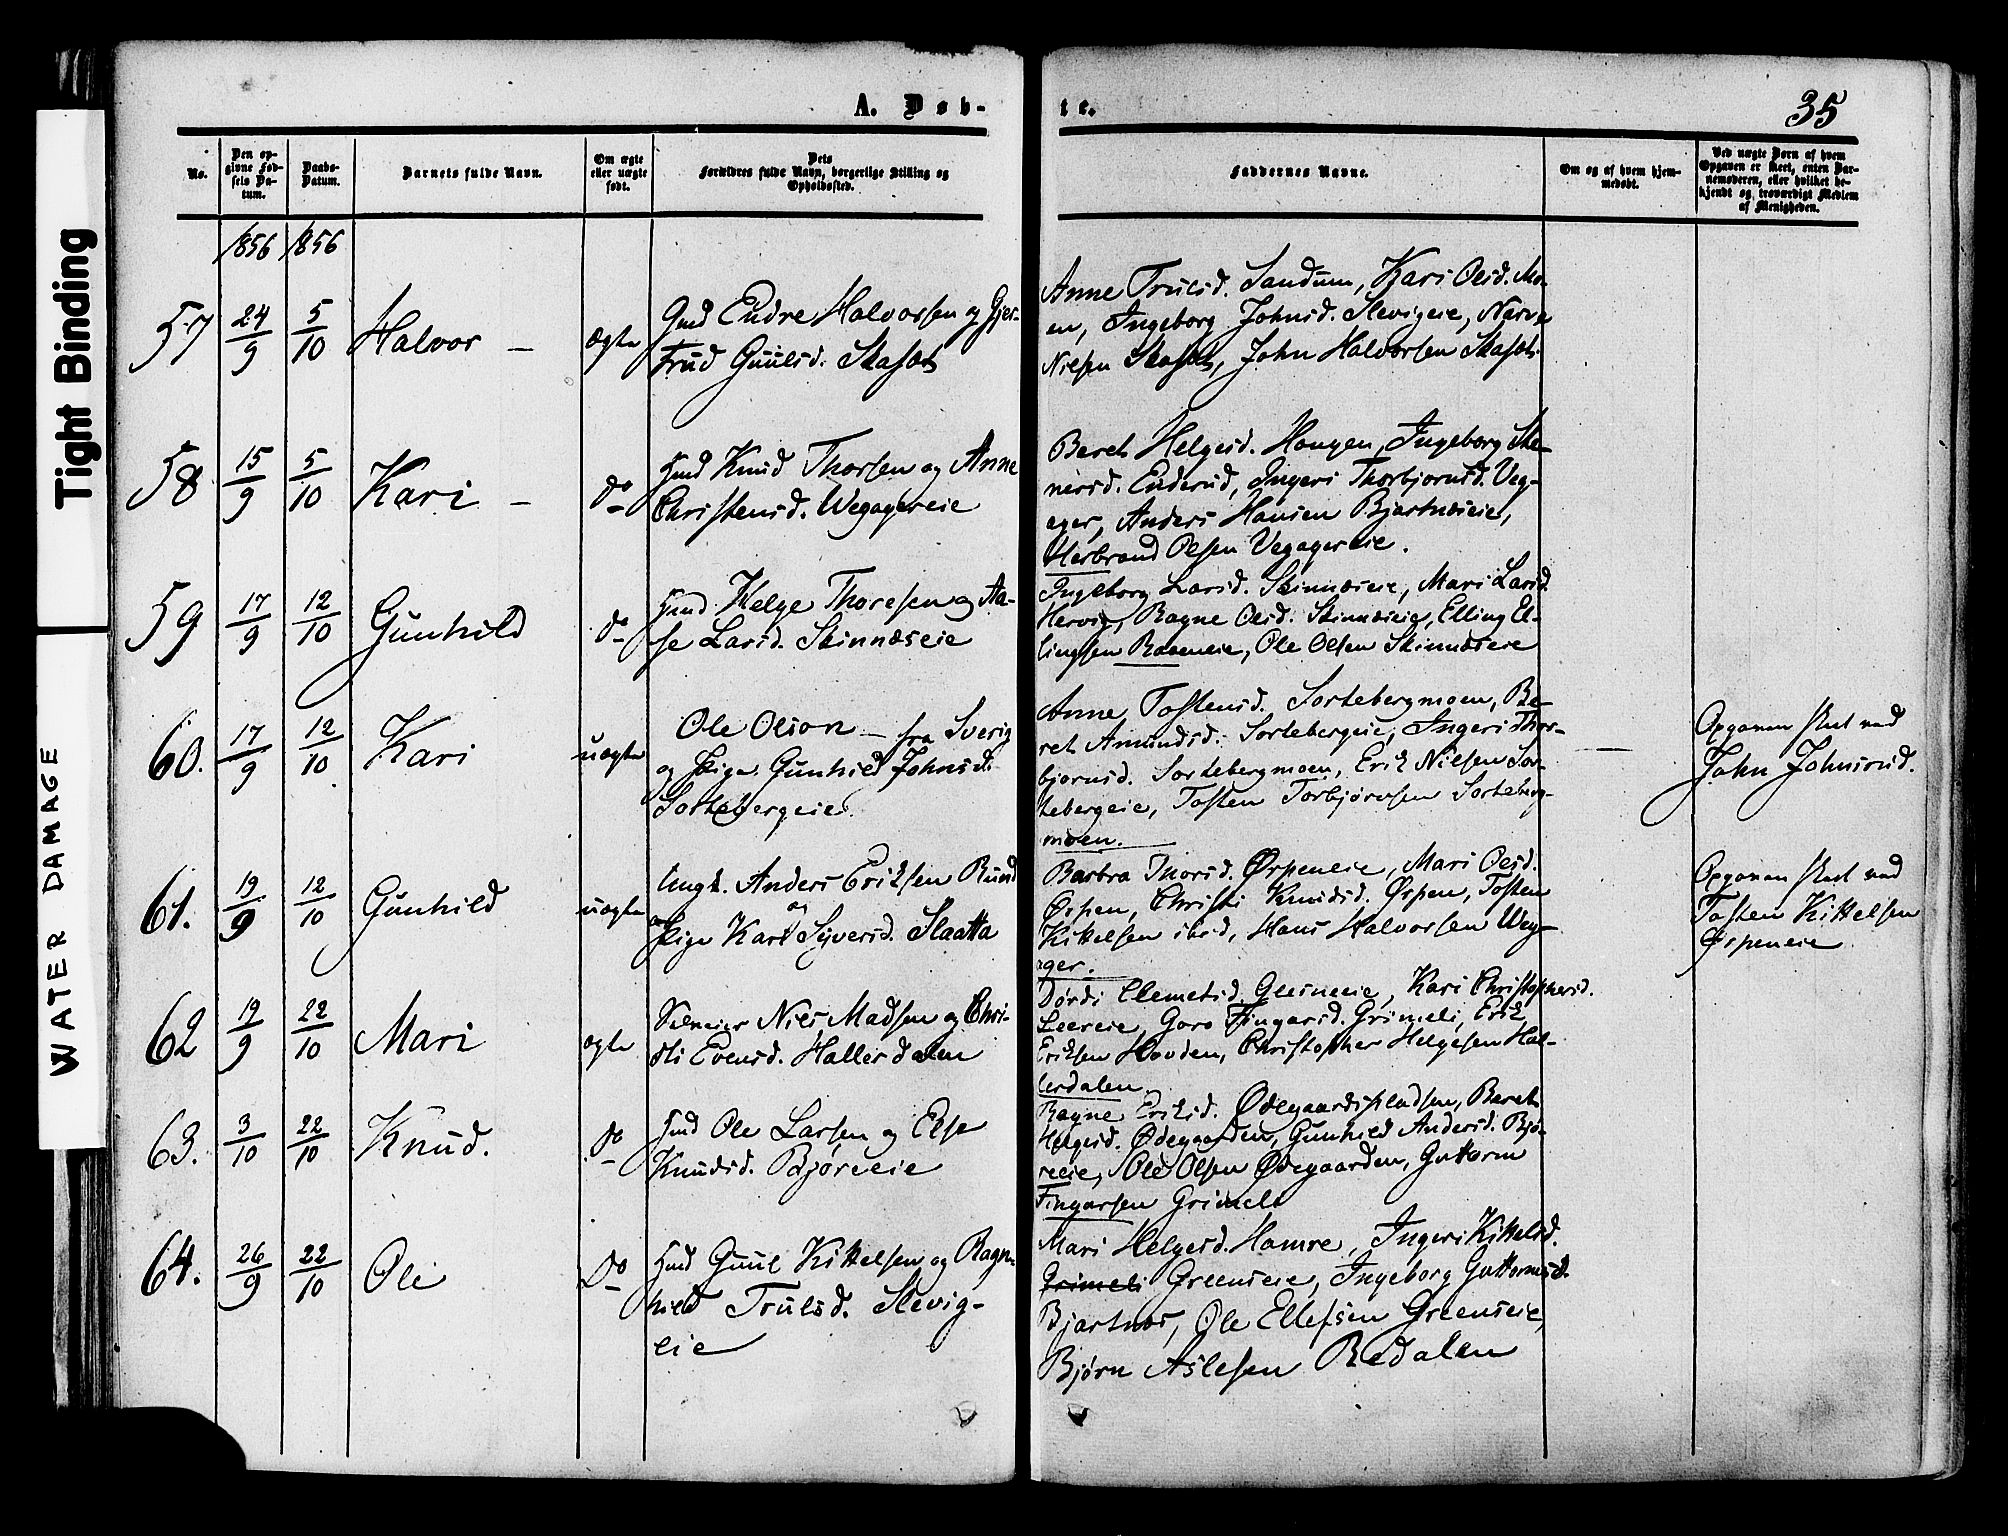 Tight Binding
WATER DAMAGE
A. Døb-
te.
35
No.
Den op-
givne Fød-
sels Da-
tum.
Daabs-
Datum.
Barnets fulde Navn.
Om ægte
eller uægte
født.
Dets
Forældres fulde Navn, borgerlige Stilling og
Opholdssted.
Faddernes Navne.
Om og af hvem hjem-
medøbt.
Ved uægte Børn af hvem
Opgaven er skeet, enten Bar-
nemoderen, eller hvilket be-
kjendt og troværdigt Medlem
af Menigheden.
1856 1856
57 24/9 5/10 Halvor – ægte
Gmd Endre Halvorsen og Gjer-
trud Guulsd. Skasæt
Anne Trulsd. Sandum, Kari Olsd. Mo-
en, Ingeborg Johnsd. Slevigeie, Narve
Nilsen Skasæt, John Halvorsen Skasæt
58 15/9 5/10 Kari – do
Hmd Knud Thorsen og Anne
Christensd. Wegagereie
Beret Helgesd. Haugen, Ingeborg Ste-
nersd. Enderud, Ingeri Thorbjørnsd. Veg-
ager, Anders Hansen Bjartnæseie,
Herbrand Olsen Vegagereie.
59 17/9 12/10 Gunhild do
Hmd Helge Thoresen og Aa-
se Larsd. Skinnæseie
Ingeborg Larsd. Skinnæseie, Mari Larsd.
Hervig, Ragne Olsd. Skinnæseie, Elling El-
lingsen Raaeneie, Ole Olsen Skinnæseie
60. 17/9 12/10 Kari uægte
Ole Olson – fra Sverig
og Pige Gunhild Johnsd.
Sortebergeie
Anne Tostensd. Sortebergmoen, Be-
ret Amundsd. Sortebergeie, Ingeri Thor-
bjørnsd. Sortebergmoen, Erik Nielsen Sor-
tebergeie, Tosten Torbjørnsen Sorteberg-
moen.
Opgaven skeet ved
John Johnsrud.
61. 19/9 12/10 Gunhild uægte
Ungk. Anders Eriksen Rund
og
Pige Kari Syversd. Slaatta
Barbra Thorsd. Ørpeneie, Mari Olsd.
Ørpen, Christi Knudsd. Ørpen, Tosten
Kittelsen ibid, Hans Halvorsen Weg-
ager.
Opgaven skeet ved
Tosten Kittelsen
Ørpeneie
62 19/9 22/10 Mari ægte
Selveier Niels Madsen og Chri-
sti Evensd. Hallerdalen
Dørdi Clemetsd. Glesneeie, Kari Christophersd.
Leereie, Goro Fingarsd. Grimeli, Erik
Eriksen Hovden, Christopher Helgesen Hal-
lerdalen.
63. 3/10 22/10 Knud. do
Hmd Ole Larsen og Else
Knudsd. Bjøreeie
Ragne Eriksd. Ødegaardspladsen, Beret
Helgesd. Ødegaarden, Gunhild Andersd. Bjø-
reeie, Ole Olsen Ødegaarden, Guttorm
Fingarsen Grimeli
64. 26/9 22/10 Ole do
Hmd Guul Kittelsen og Ragn-
hild Trulsd. Slevig-
eie
Mari Helgesd. Hamre, Ingeri Kittelsd.
Grimeli Greenseie, Ingeborg Guttormsd.
Bjartnæs, Ole Ellefsen Greenseie,
Bjørn Aslesen Redalen